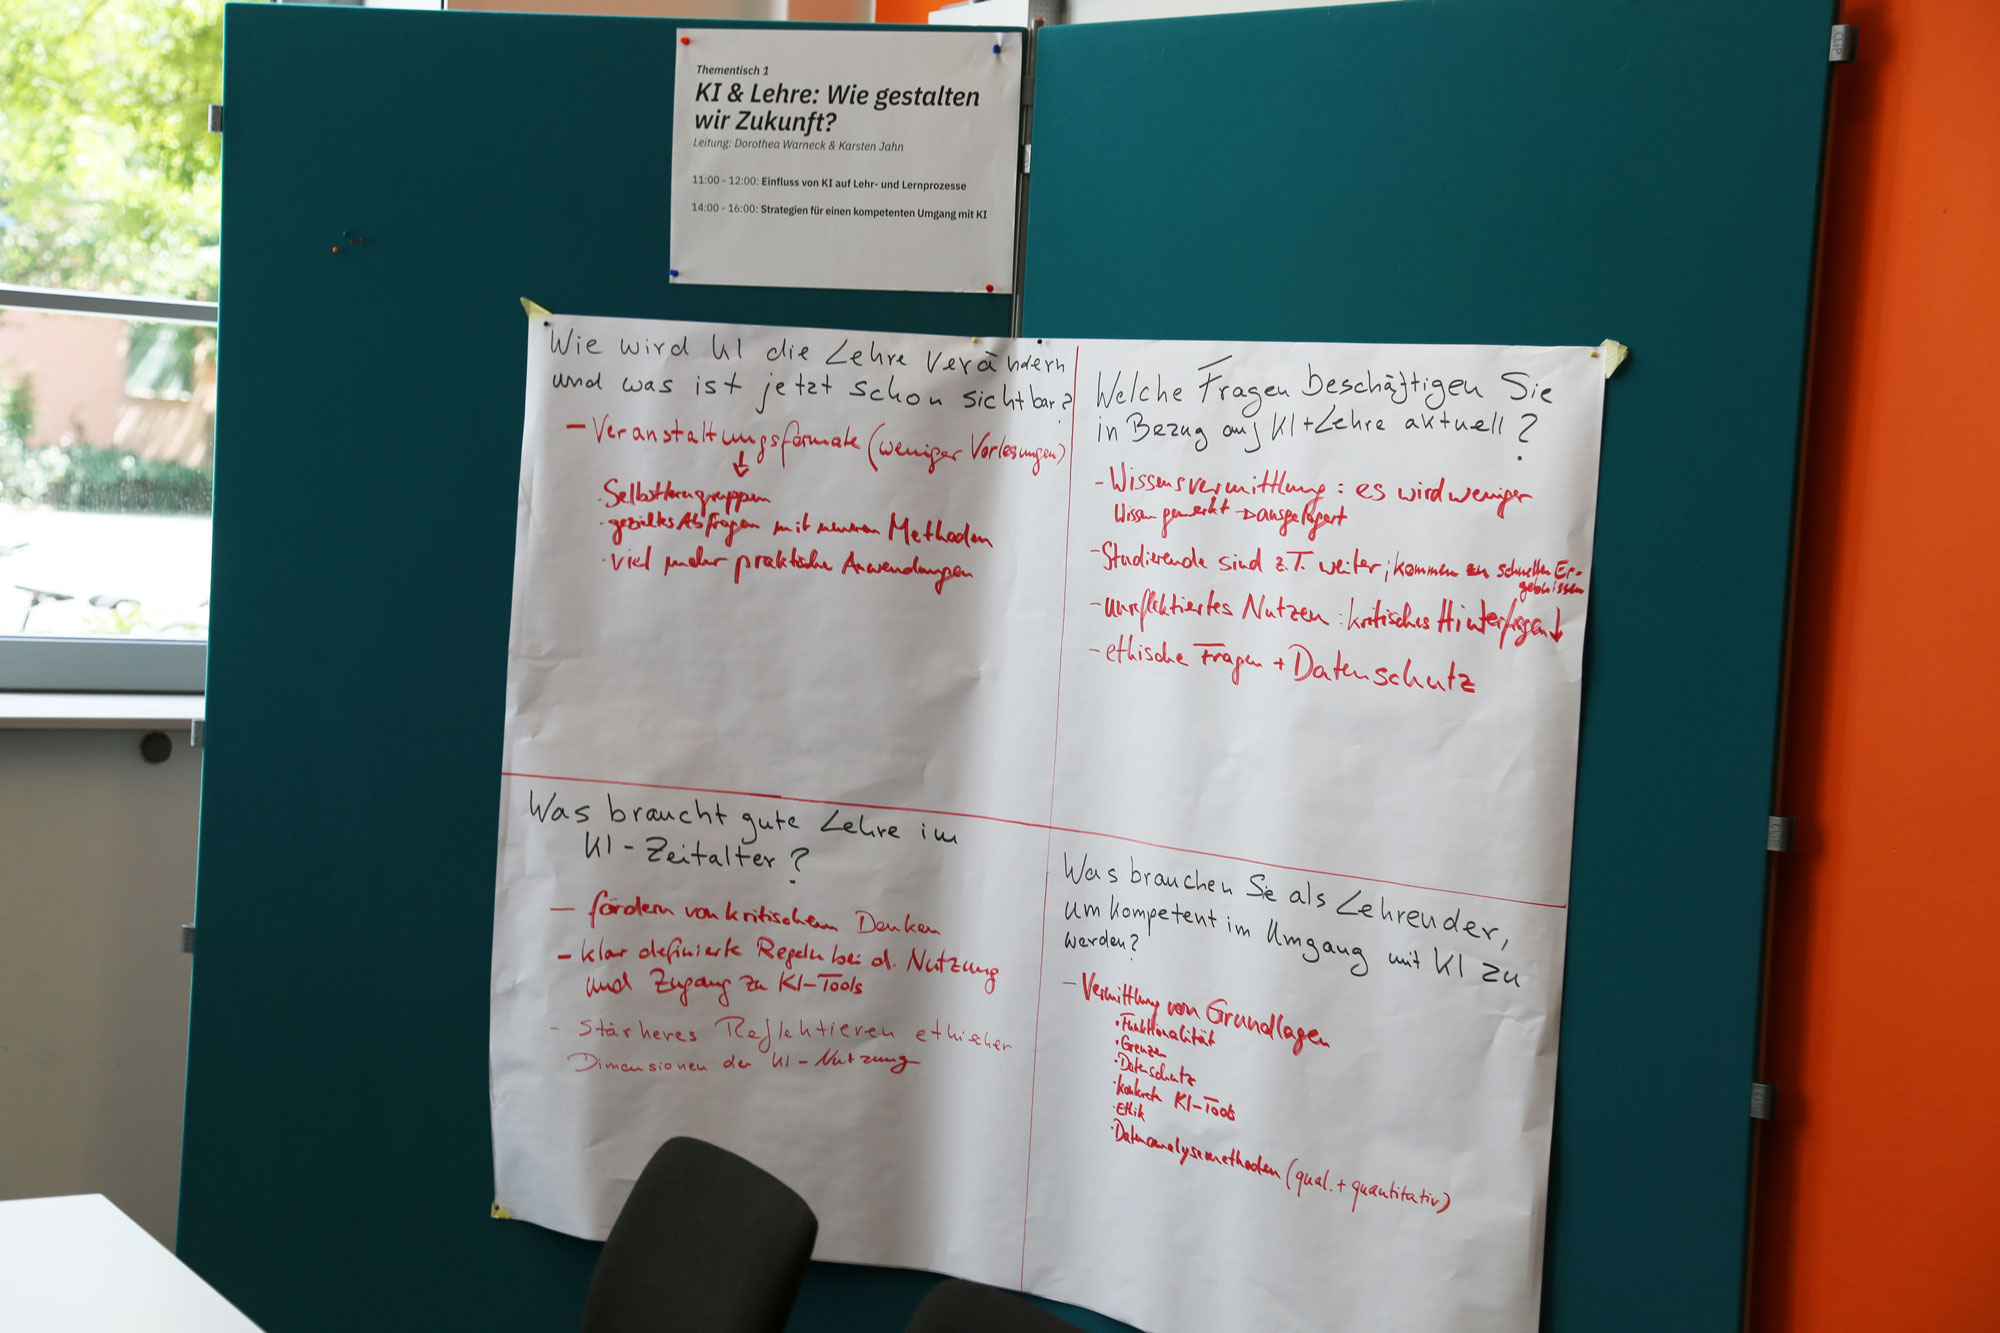 Thementisch 1
KI & Lehre: Wie gestalten
wir Zukunft?
Leitung: Dorothea Warneck & Karsten Jahn
11:00 - 12:00: Einfluss von KI auf Lehr- und Lernprozesse
14:00 - 16:00: Strategien für einen kompetenten Umgang mit KI
Wie wird KI die Lehre verändern
und was ist jetzt schon sichtbar?
- Veranstaltungsformate (weniger Vorlesungen)
↓
· Selbstlerngruppen
· gezieltes Abfragen mit neueren Methoden
· viel mehr praktische Anwendungen
Welche Fragen beschäftigen Sie
in Bezug auf KI+Lehre aktuell?
- Wissensvermittlung: es wird weniger
Wissen gemerkt → ausgelagert
- Studierende sind z.T. weiter; kommen zu schnellen Er-
gebnissen
- unreflektiertes Nutzen: kritisches Hinterfragen ↓
- ethische Fragen + Datenschutz
Was braucht gute Lehre im
KI-Zeitalter?
- fördern von kritischem Denken
- klar definierte Regeln bei d. Nutzung
und Zugang zu KI-Tools
- Stärkeres Reflektieren ethischer
Dimensionen der KI-Nutzung
Was brauchen Sie als Lehrender,
um kompetent im Umgang mit KI zu
werden?
- Vermittlung von Grundlagen
· Funktionalität
· Grenzen
· Datenschutz
· konkrete KI-Tools
· Ethik
· Datenanalysemethoden (qual. + quantitativ)